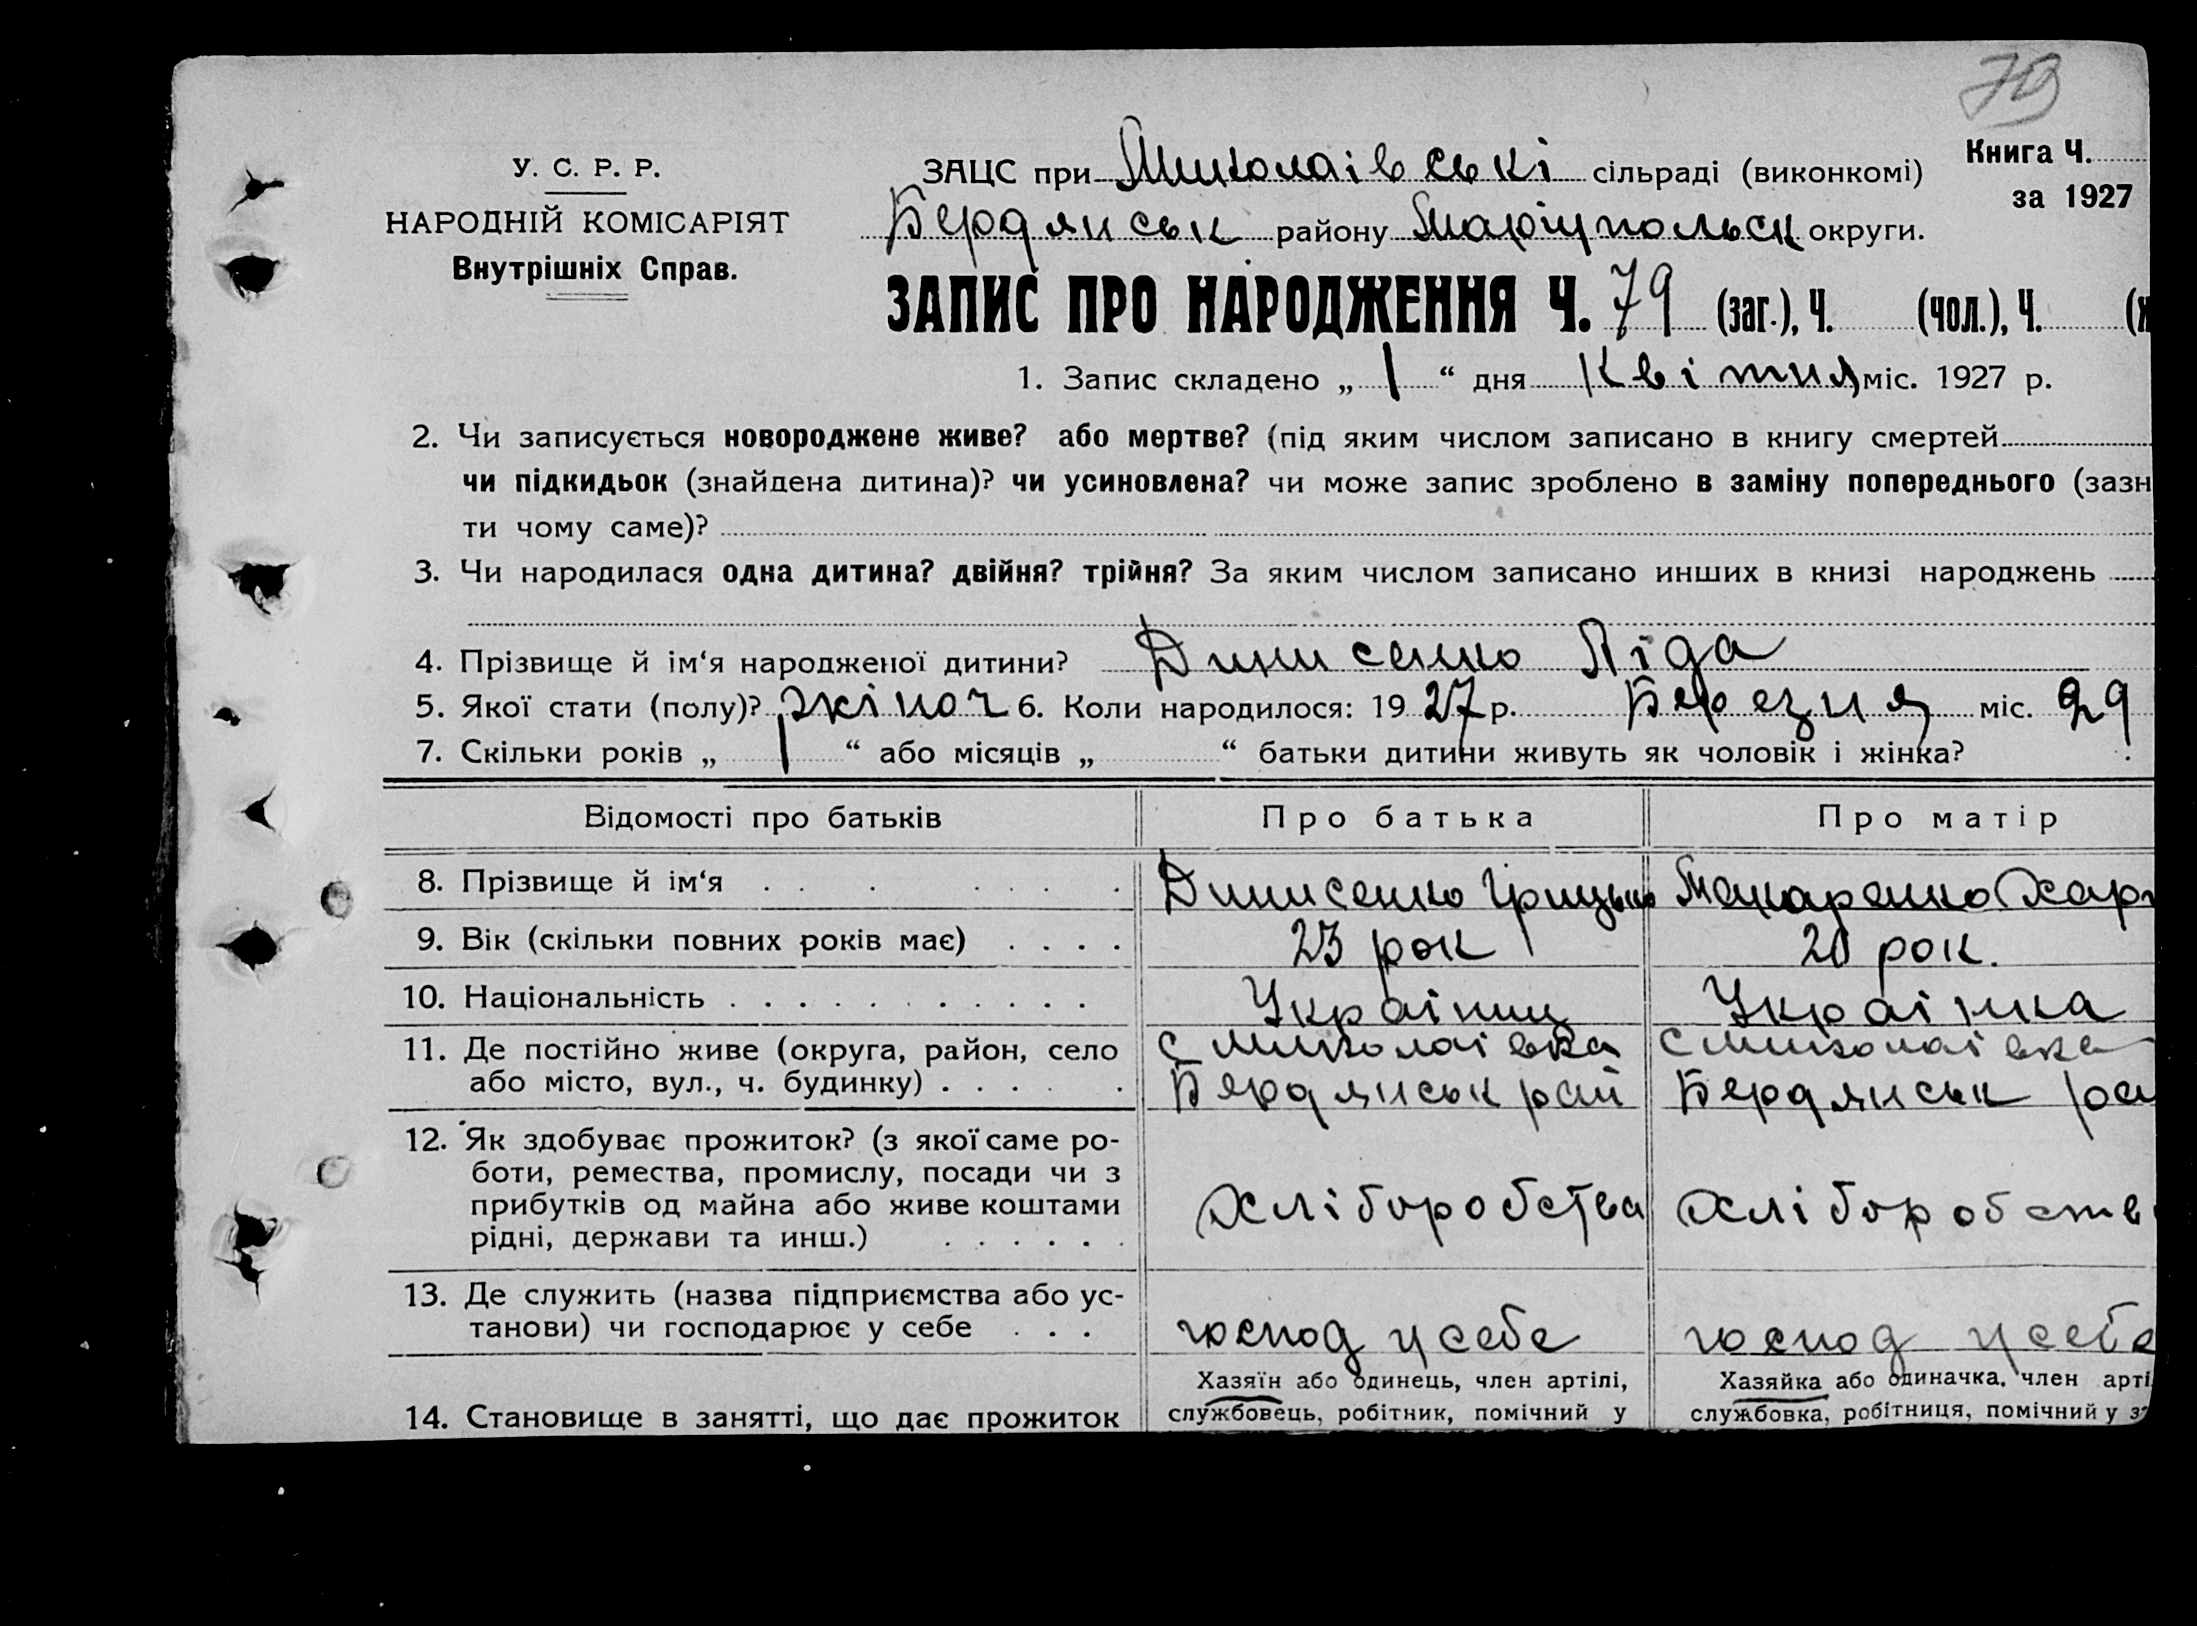 79
У. С. Р. Р.
НАРОДНІЙ КОМІСАРІЯТ
Внутрішніх Справ.
ЗАЦС при Миколаівські сільраді (виконкомі)
Книга Ч.
за 1927
Бердянськ району Маріупольськ округи.
ЗАПИС ПРО НАРОДЖЕННЯ Ч. 79 (заг.), Ч. (чол.), Ч. (ж
1. Запис складено „ 1 “ дня Квітня міс. 1927 р.
2. Чи записується новороджене живе? або мертве? (під яким числом записано в книгу смертей
чи підкидьок (знайдена дитина)? чи усиновлена? чи може запис зроблено в заміну попереднього (зазн
ти чому саме)?
3. Чи народилася одна дитина? двійня? трійня? За яким числом записано инших в книзі народжень
4. Прізвище й ім‘я народженої дитини? Динисенко Ліда
5. Якої стати (полу)? жіноч 6. Коли народилося: 1927 р. Березня міс. 29
7. Скільки років „ 1 “ або місяців „ “ батьки дитини живуть як чоловік і жінка?
Відомості про батьків Про батька Про матір
8. Прізвище й ім‘я Динисенко Грицько Макаренко Хар
9. Вік (скільки повних років має) 23 рок 20 рок.
10. Національність Украінец Украінка
11. Де постійно живе (округа, район, село с Миколаівка с Миколаівка
або місто, вул., ч. будинку) Бердянськ рай Бердянськ ра
12. Як здобуває прожиток? (з якої саме ро-
боти, ремества, промислу, посади чи з
прибутків од майна або живе коштами хліборобства хліборобств
рідні, держави та инш.)
13. Де служить (назва підприємства або ус-
танови) чи господарює у себе господ у себе господ у себе
Хазяїн або одинець, член артілі, Хазяйка або одиначка. член арті
14. Становище в занятті, що дає прожиток службовець, робітник, помічний у службовка, робітниця, помічний у з